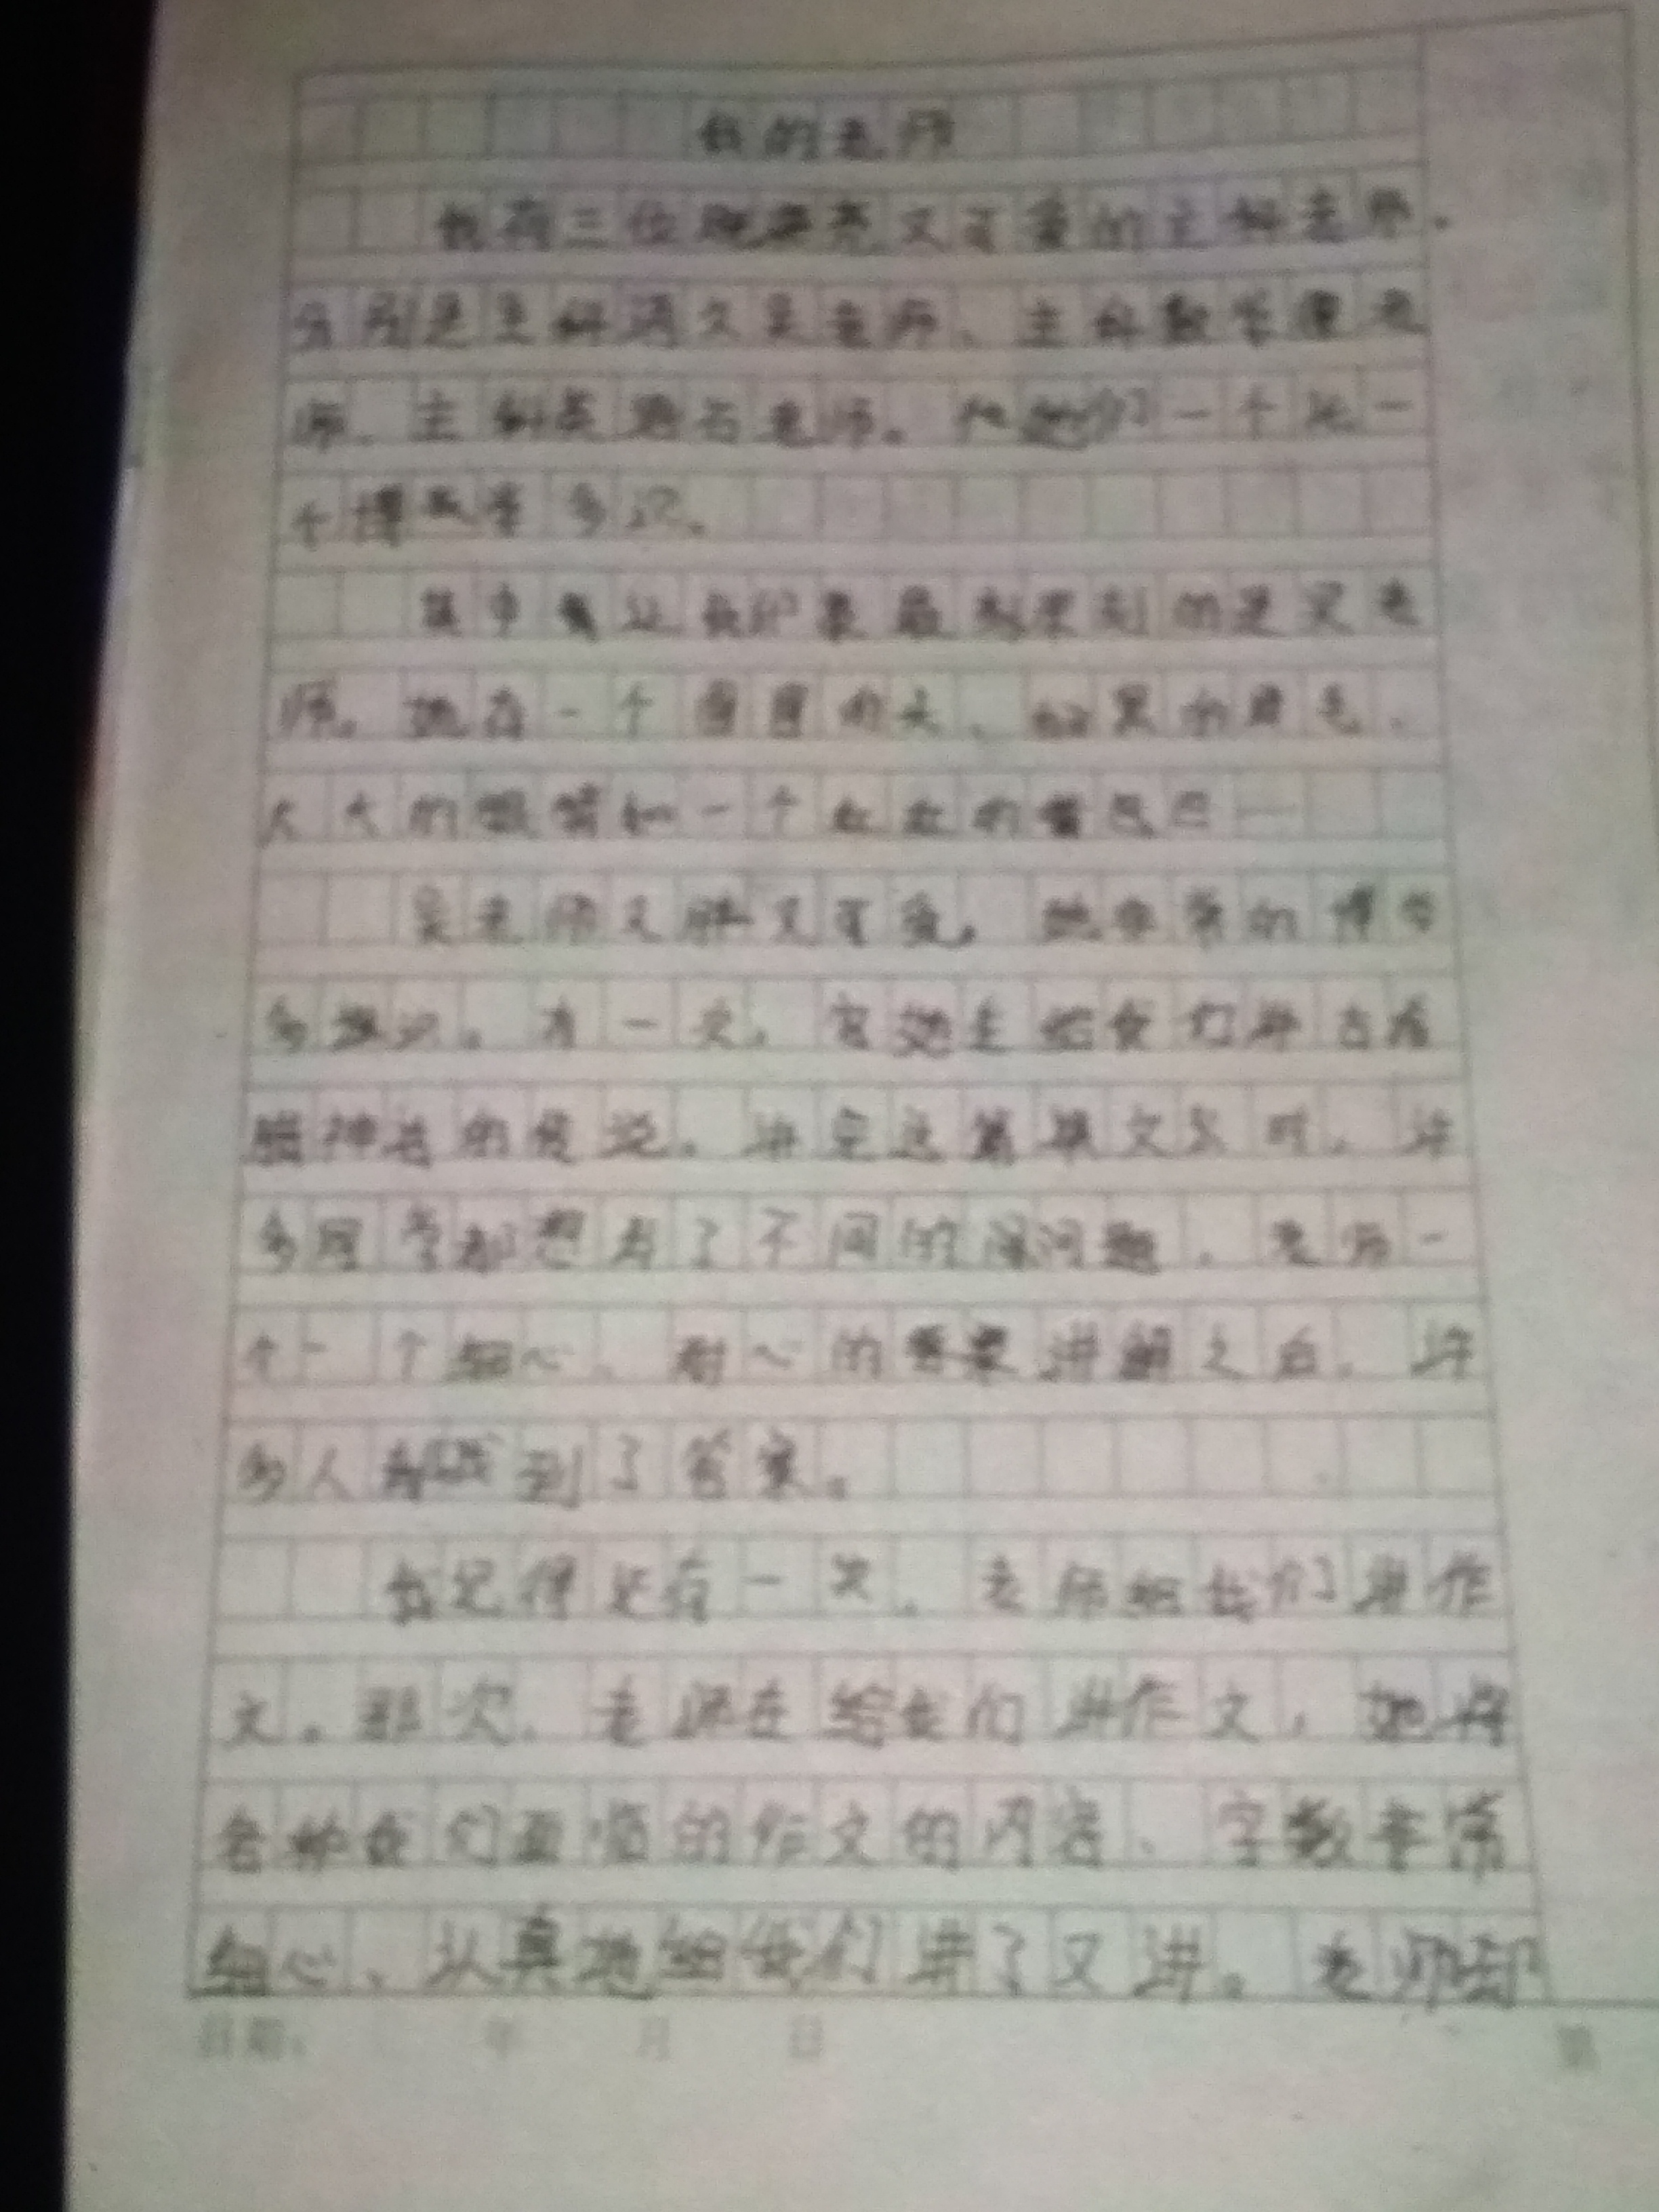 我的老师
我有三位漂亮又可爱的主科老师.
分别是主科语文吴老师、主科数学老
师、主科英语石老师。她们一个比一
个博学多识。
其中让我印象最深刻的是吴老
师。她有一个圆圆的头、的眉毛、
大大的眼睛和一个红红的嘴巴
吴老师又胖又可爱，她非常的博学
多识。有一次，她在给我们讲古希
腊神话的传说。讲完这篇课文时，许
多同学都想有了不同的问题，老师一
个一个细心、耐心的讲解之后，许
多人都找到了答案。
我记得还有一次，老师给我们讲作
文。那次，老师在给我们讲作文，她将
我们的作文的内容、字数非常
细心、认真地给我们讲了又讲。老师却
日期： 年 月 日 第